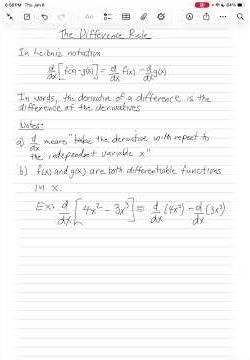 6:58 PM Thu Jan 6
64%
The Difference Rule
In Leibniz notation
d/dx [f(x) - g(x)] = d/dx f(x) - d/dx g(x)
In words, the derivative of a difference is the
difference of the derivatives
Notes:
a) d/dx means "take the derivative with respect to
the independent variable x"
b) f(x) and g(x) are both differentiable functions
in x.
Ex: d/dx [4x² - 3x³] = d/dx (4x²) - d/dx (3x³)